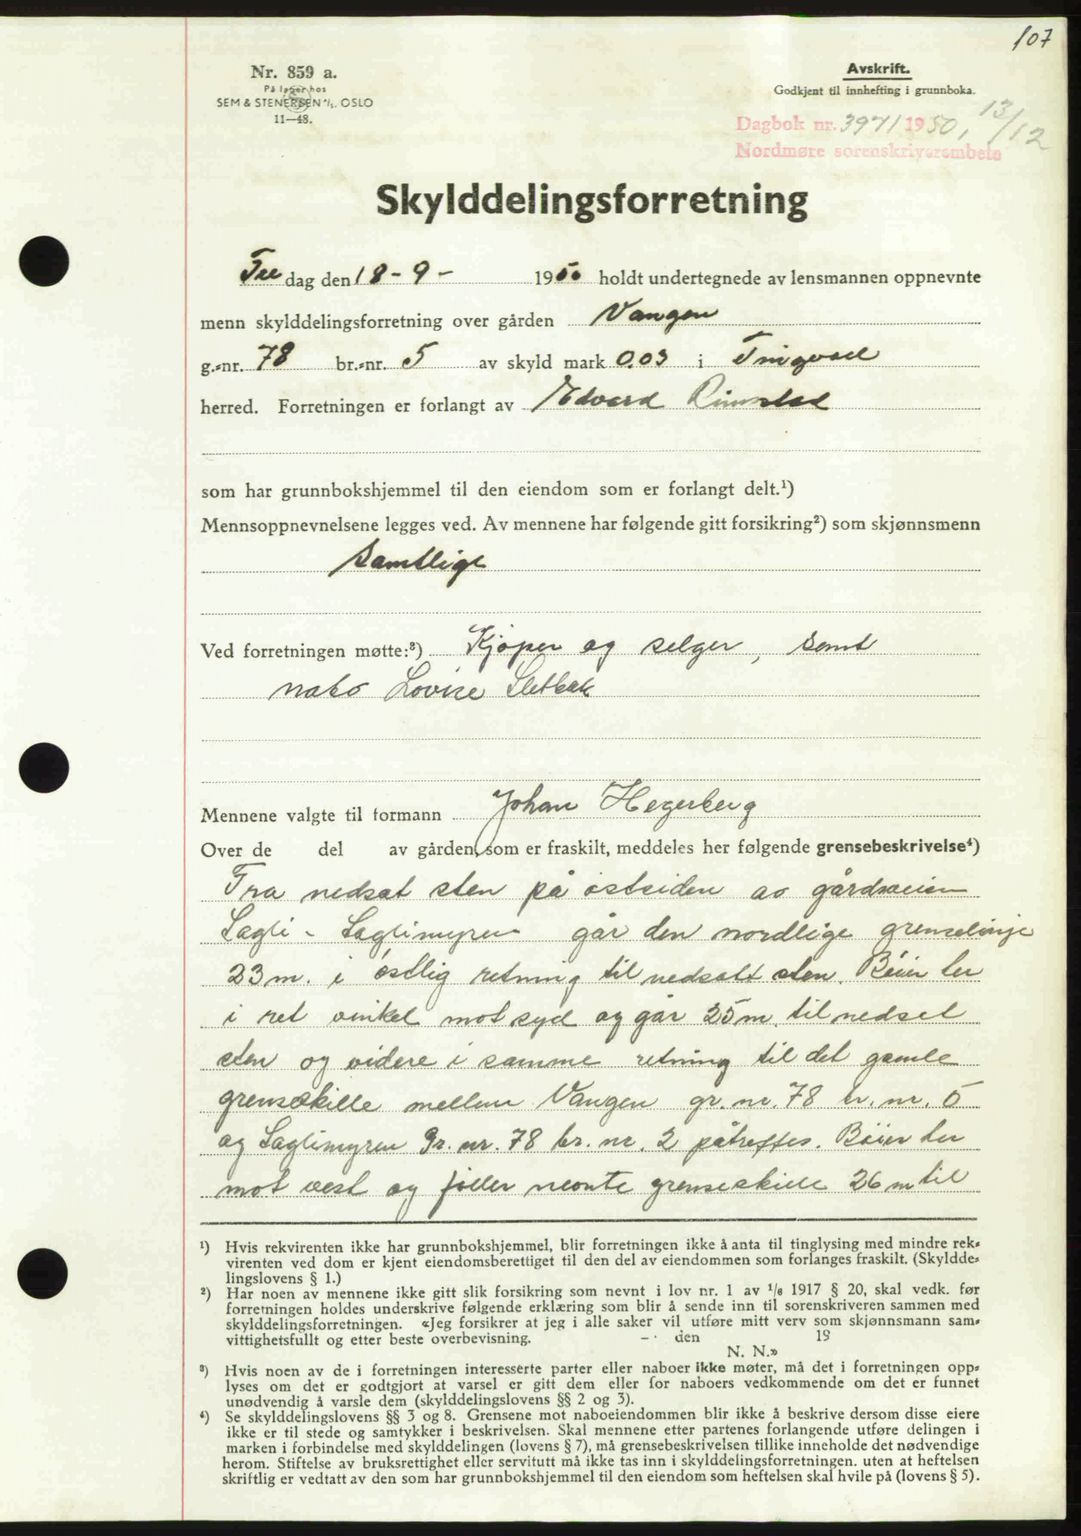 107
Nr. 859 a.
På lager hos
SEM & STENERSEN A/S. OSLO
11—48.
Avskrift.
Godkjent til innhefting i grunnboka.
Dagbok nr. 3971 1950, 13/12
Nordmøre sorenskriverembete
Skylddelingsforretning
dag den 18-9- 1950 holdt undertegnede av lensmannen oppnevnte
menn skylddelingsforretning over gården Vangen
g.-nr. 78 br.-nr. 5 av skyld mark 0.03 i Tingvoll
herred. Forretningen er forlangt av Edvard Rimstad
som har grunnbokshjemmel til den eiendom som er forlangt delt.¹)
Mennsoppnevnelsene legges ved. Av mennene har følgende gitt forsikring²) som skjønnsmenn
Samtlige
Ved forretningen møtte:³) Kjøper og selger, samt
nabo Lovise Sletbak
Mennene valgte til formann Johan Hegerberg
Over de del av gården, som er fraskilt, meddeles her følgende grensebeskrivelse⁴)
Fra nedsat sten på østsiden av gårdsveien
Sagli - Saglimyren går den nordlige grenselinje
23 m. i østlig retning til nedsatt sten. Bøier her
i ret vinkel mot syd og går 25 m. til nedsat
sten og videre i samme retning til det gamle
grenseskille mellem Vangen gr. nr. 78 br. nr. 5
og Saglimyren Gr. nr. 78 br. nr. 2 påtreffes. Bøier her
mot vest og følger nevnte grenseskille 26 m til
¹) Hvis rekvirenten ikke har grunnbokshjemmel, blir forretningen ikke å anta til tinglysing med mindre rek-
virenten ved dom er kjent eiendomsberettiget til den del av eiendommen som forlanges fraskilt. (Skyldde-
lingslovens § 1.)
²) Har noen av mennene ikke gitt slik forsikring som nevnt i lov nr. 1 av 1/6 1917 § 20, skal vedk. før
forretningen holdes underskrive følgende erklæring som blir å sende inn til sorenskriveren sammen med
skylddelingsforretningen. «Jeg forsikrer at jeg i alle saker vil utføre mitt verv som skjønnsmann sam-
vittighetsfullt og etter beste overbevisning. — · den 19
N. N.»
³) Hvis noen av de i forretningen interesserte parter eller naboer ikke møter, må det i forretningen opp-
lyses om det er godtgjort at varsel er gitt dem eller for naboers vedkommende om det er funnet
unødvendig å varsle dem (skylddelingslovens §§ 2 og 3).
⁴) Se skylddelingslovens §§ 3 og 8. Grensene mot naboeiendommen blir ikke å beskrive dersom disse eiere
ikke er til stede og samtykker i beskrivelsen. Skal mennene etter partenes forlangende utføre delingen i
marken i forbindelse med skylddelingen (lovens § 7), må grensebeskrivelsen tillike inneholde det nødvendige
herom. Stiftelse av bruksrettighet eller servitutt må ikke tas inn i skylddelingsforretningen. uten at heftelsen
skriftlig er vedtatt av den som har grunnbokshjemmel til den eiendom som heftelsen skal hvile på (lovens § 5).